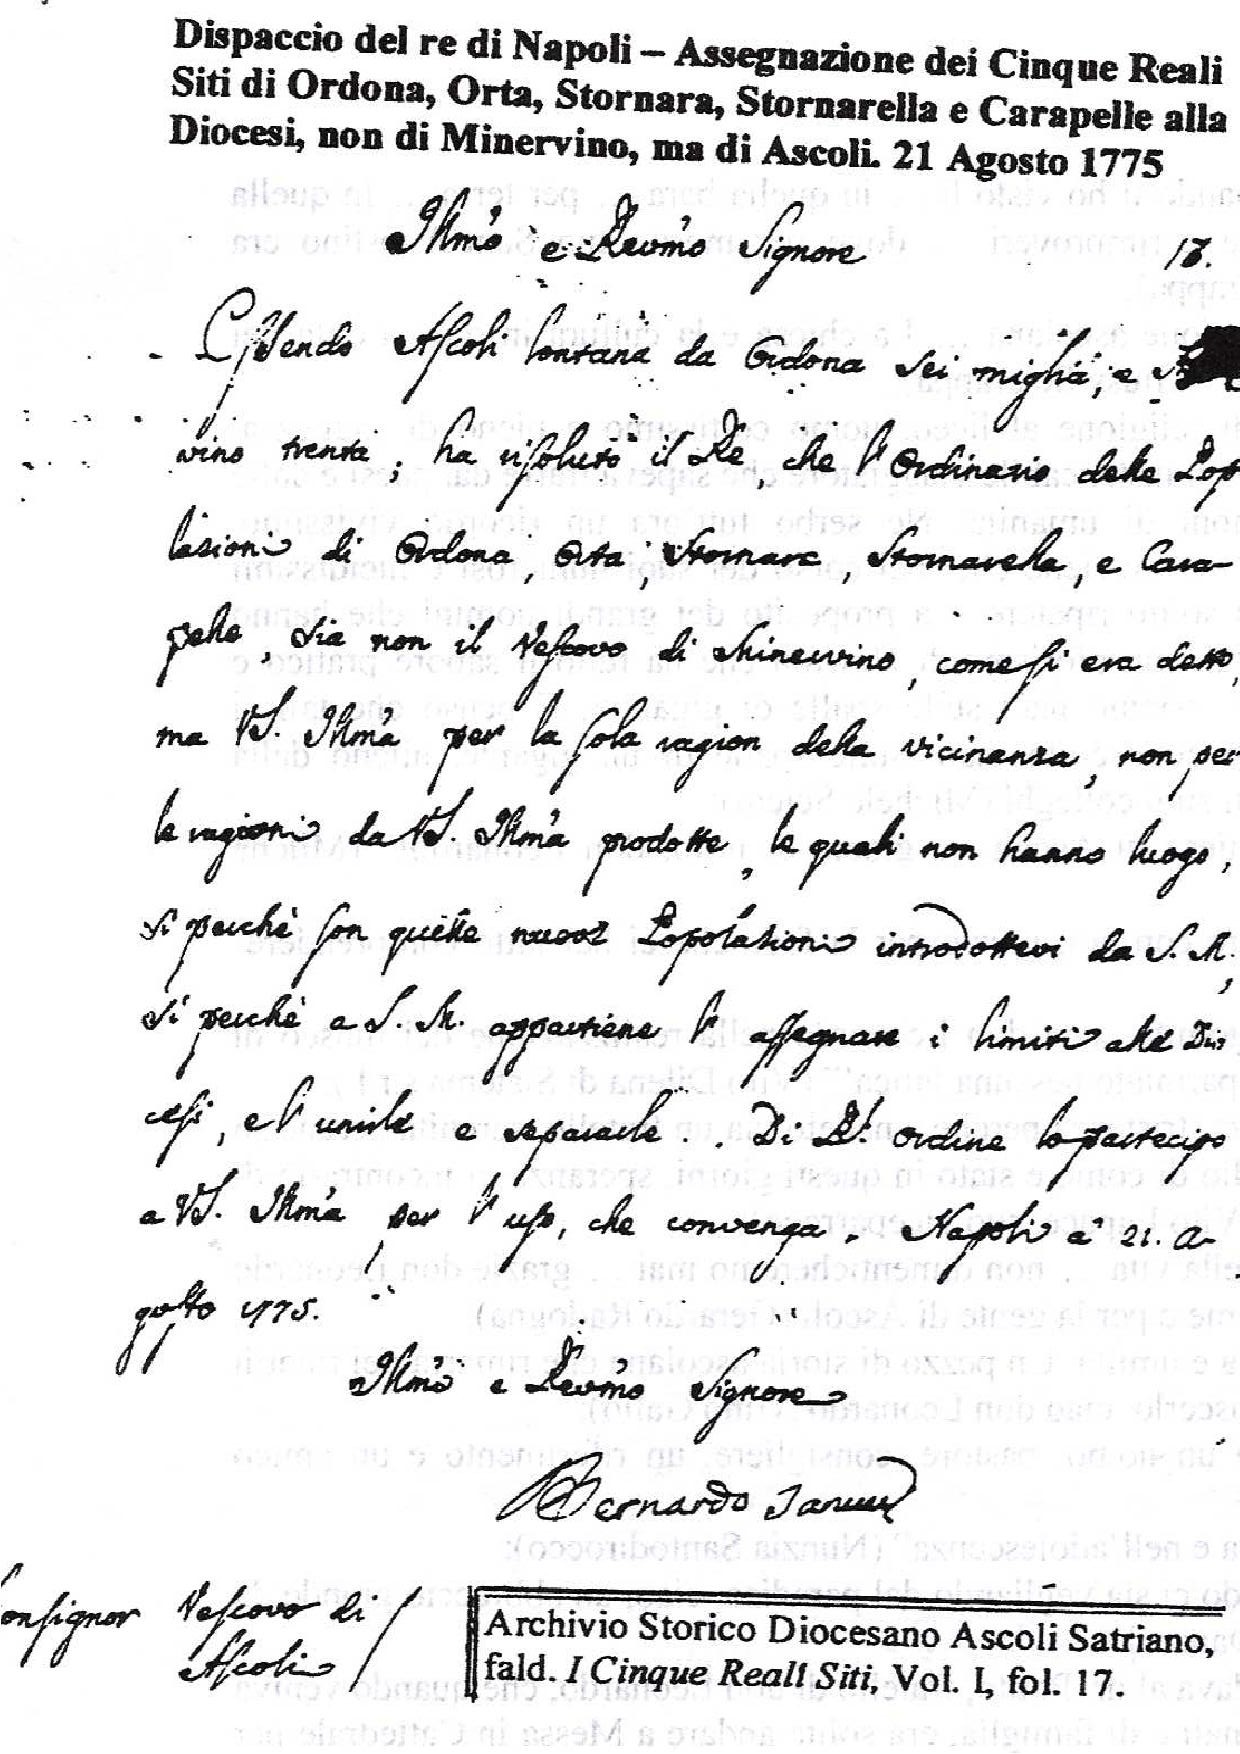 Dispaccio del re di Napoli – Assegnazione dei Cinque Reali
Siti di Ordona, Orta, Stornara, Stornarella e Carapelle alla
Diocesi, non di Minervino, ma di Ascoli. 21 Agosto 1775
Illmo e Revmo Signore
17.
Essendo Ascoli lontana da Ordona sei miglia, e
vino trenta, ha risoluto il Re, che l'Ordinario delle Pop
lazioni di Ordona, Orta, Stornara, Stornarella, e Cara-
pelle, sia non il Vescovo di Minervino, come si era detto,
ma VS. Illma per la sola ragion della vicinanza, non per
le ragioni da VS. Illma prodotte, le quali non hanno luogo,
si perchè son quelle nuove Popolazioni introdottevi da S. M.,
si perchè a S. M. appartiene l'assegnare i limiti alle Dio
cesi, e l'unirle e separarle. Di Rl. ordine lo partecipo
a VS. Illma per l'uso, che convenga. Napoli a 21. A-
gosto 1775.
Illmo e Revmo Signore
Bernardo Tanucci
onsignor Vescovo di
Ascoli
Archivio Storico Diocesano Ascoli Satriano,
fald. I Cinque Reali Siti, Vol. I, fol. 17.